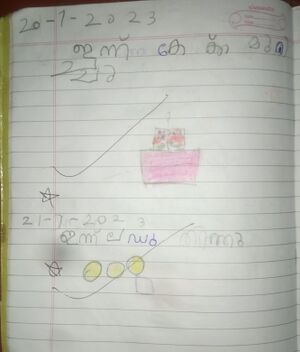 20-1-2023
ഇന്ന് കേക്ക് മുറി
ച്ചു
21-1-2023
ഇന്ന് ലഡു തിന്നു